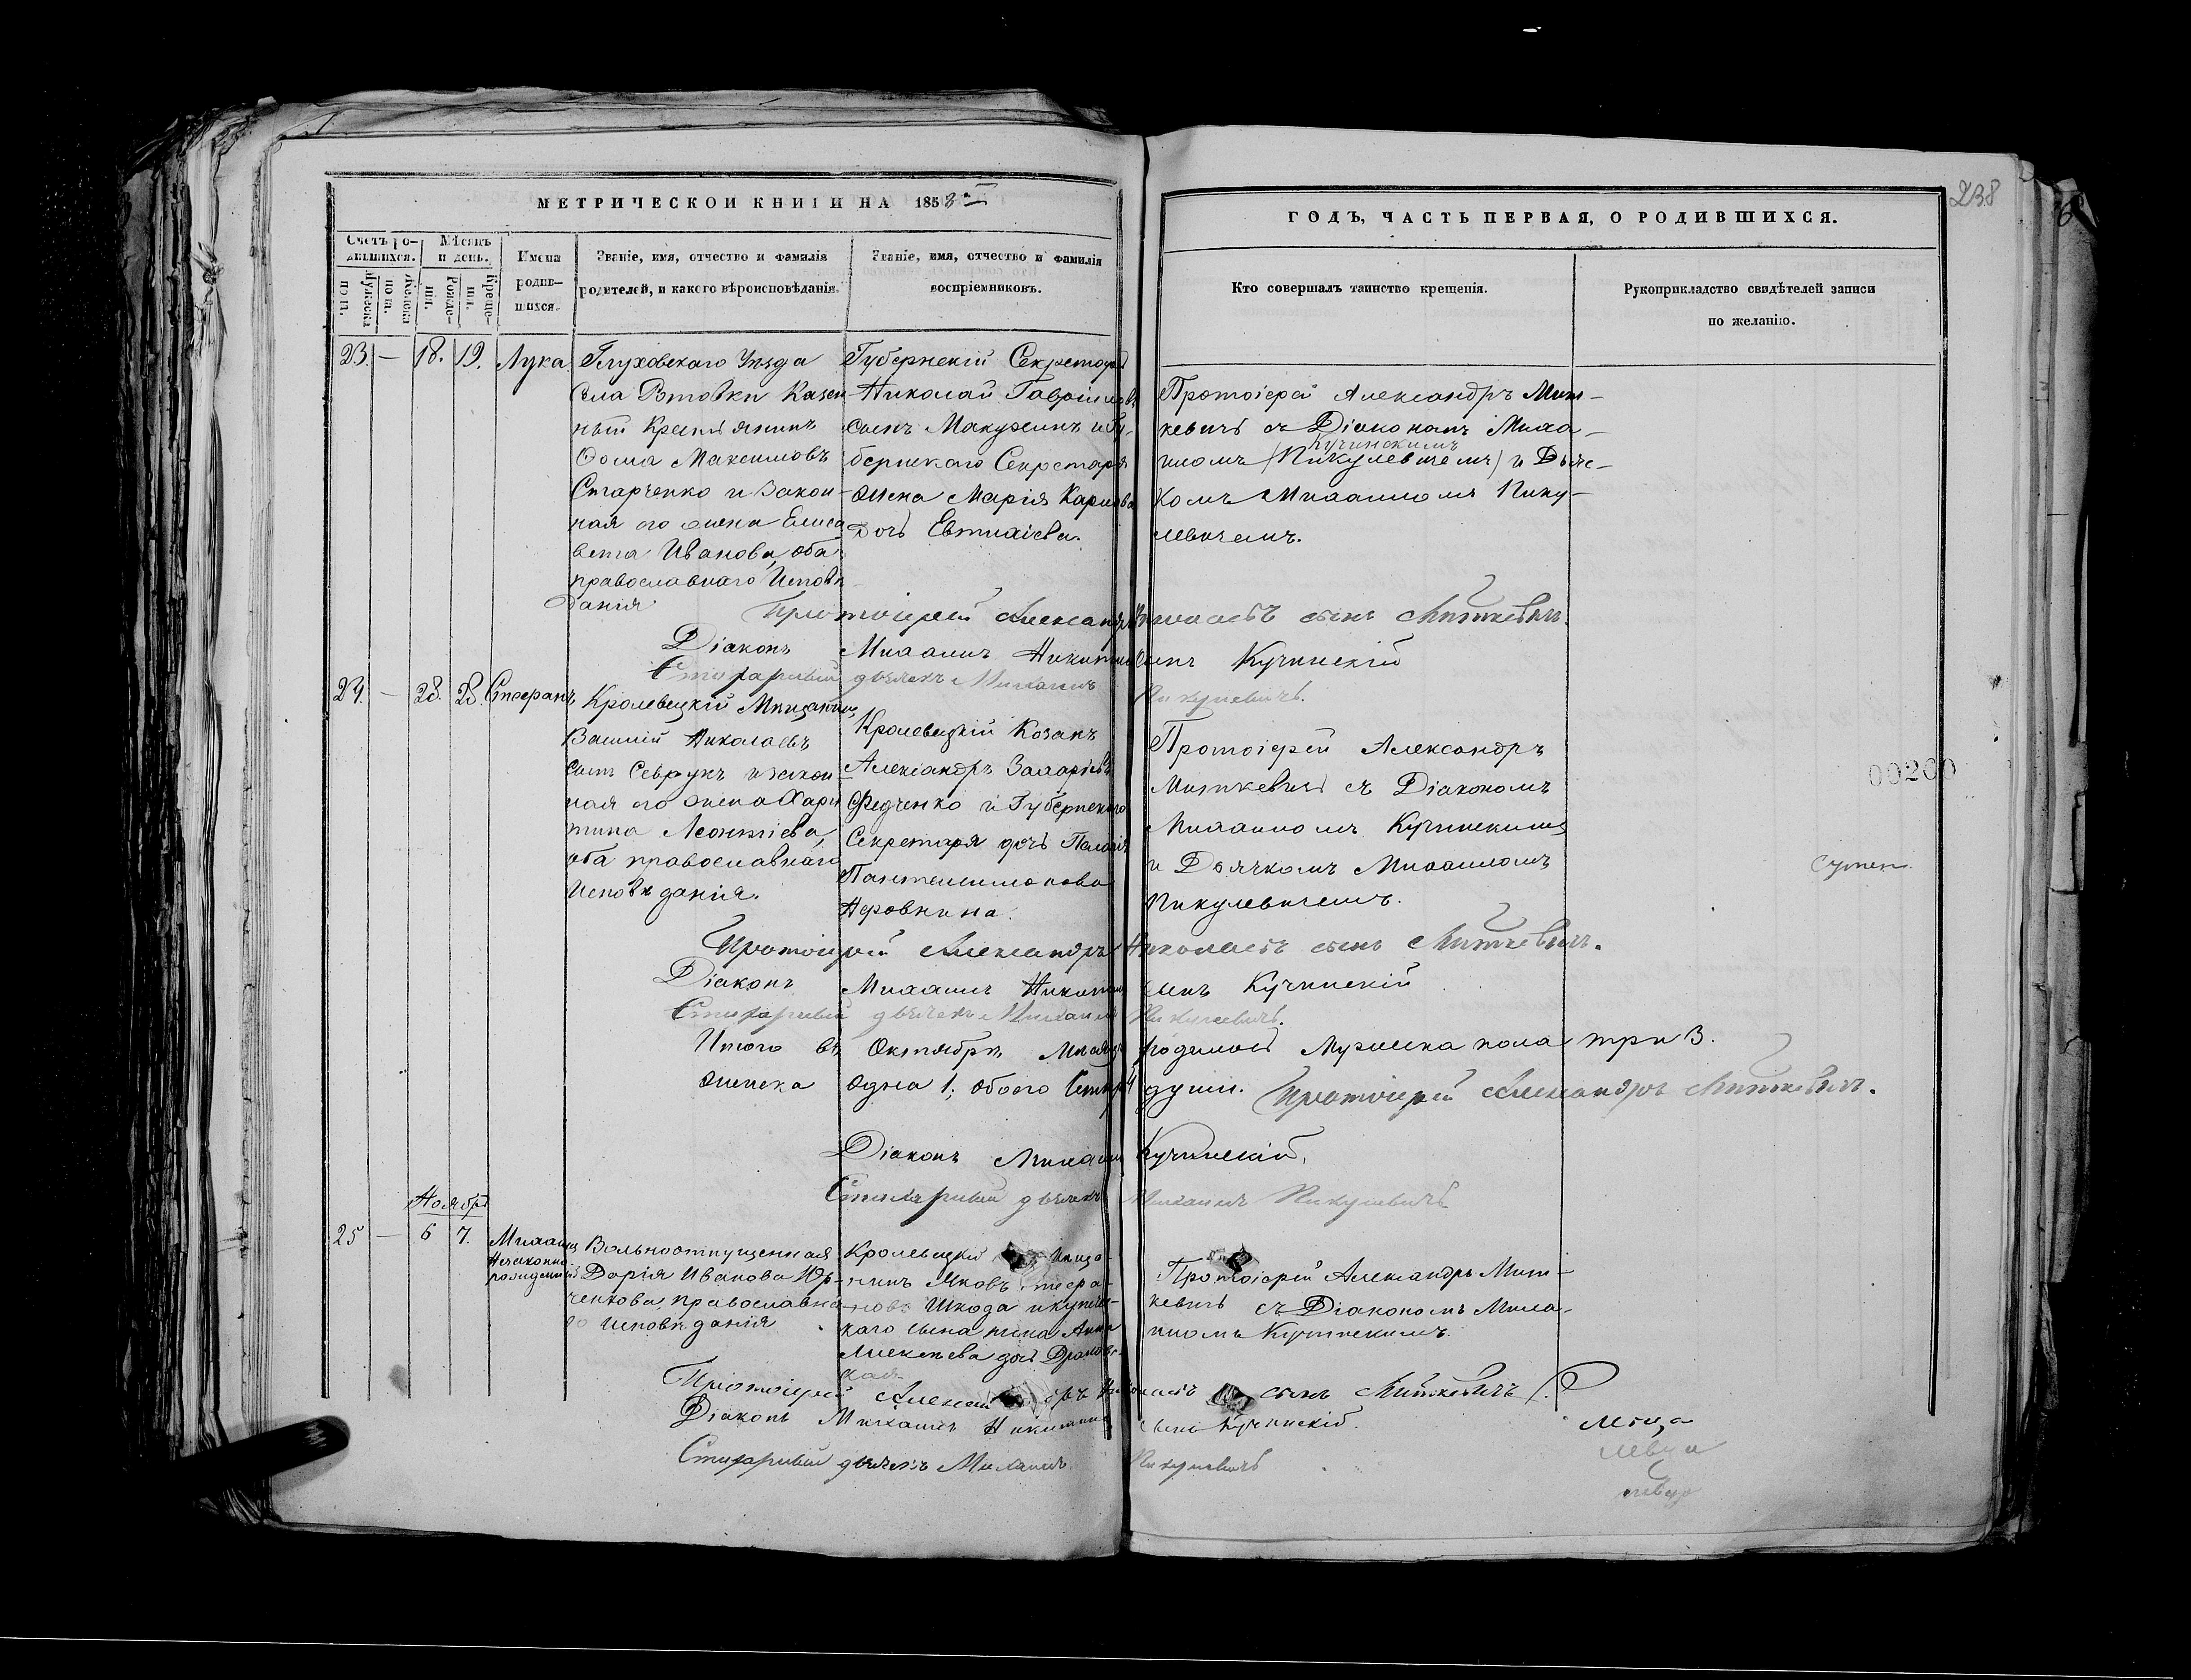 МЕТРИЧЕСКОЙ КНИГИ НА 1858й
ГОДЪ, ЧАСТЬ ПЕРВАЯ, О РОДИВШИХСЯ.
238
Счетъ ро-
дившихся.
Мѣсяцъ
и день.
Мужеска
пола.
Женска
пола.
Рожде-
нія.
Креще-
нія.
Имена
родив-
шихся.
Званіе, имя, отчество и фамилія
родителей, и какого вѣроисповѣданія.
Званіе, имя, отчество и фамилія
воспріемниковъ.
Кто совершалъ таинство крещенія.
Рукоприкладство свидѣтелей записи
по желанію.
23. — 18. 19. Лука
Глуховскаго Уѣзда
села Ротовки Казен-
ный Крестьянинъ
Ѳома Максимовъ
Старченко и Закон-
ная его жена Елиса
вета Иванова, оба
православнаго Исповѣ
данія
Губернскій Секретарь
Николай Гавріиловъ
сынъ Макухинъ и Гу-
бернскаго Секретаря
жена Марія Карпова
дочь Евтихіева.
Протоіерей Александръ Мит-
кевичъ съ Діакономъ Миха-
Кучинскимъ
иломъ (Пикулевичемъ) и Дьяч-
комъ Михаиломъ Пику-
левичемъ.
Протоіерей Александръ Николаевъ сынъ Миткевичъ.
Діаконъ Михаилъ Никитинъ сынъ Кучинскій
Стихарный дьячекъ Михаилъ Пикулевичъ.
24. — 28. 28. Стефанъ
Кролевецкій Мѣщанинъ
Василій Николаевъ
сынъ Севрукъ и закон
ная его жена Хари
тина Леонтіева,
оба православнаго
Исповѣданія.
Кролевецкій Козакъ
Александръ Захаріевъ
Федченко и Губернскаго
Секретаря дочь Пелагія
Пантелеимонова
Неровнина.
Протоіерей Александръ
Миткевичъ съ Діакономъ
Михаиломъ Кучинскимъ
и Дьячкомъ Михаиломъ
Пикулевичемъ.
00200
Протоіерей Александръ Николаевъ сынъ Миткевичъ.
Діаконъ Михаилъ Никитинъ сынъ Кучинскій
Стихарный дьячекъ Михаилъ Пикулевичъ.
Итого въ Октябрѣ Мѣсяцѣ родилось Мужеска пола три 3.
женска одна 1; обоего четыре 4 души. Протоіерей Александръ Миткевичъ.
Діаконъ Михаилъ Кучинскій.
Стихарный дьячекъ Михаилъ Пикулевичъ
Ноябрь
25 — 6 7. Михаилъ
Незаконно
рожденный
Вольноотпущенная
Дарія Иванова Юр-
ченкова, православна-
го Исповѣданія
Кролевецкій Мѣща-
нинъ Яковъ Стефа-
новъ Шкода и купече-
каго сына жена Анна
Алексѣева дочь
Протоіерей Александръ Мит-
кевичъ съ Діакономъ Миха-
иломъ Кучинскимъ.
Протоіерей Александръ Николаевъ сынъ Миткевичъ.
Діаконъ Михаилъ Никитинъ сынъ Кучинскій.
Стихарный дьячекъ Михаилъ Пикулевичъ